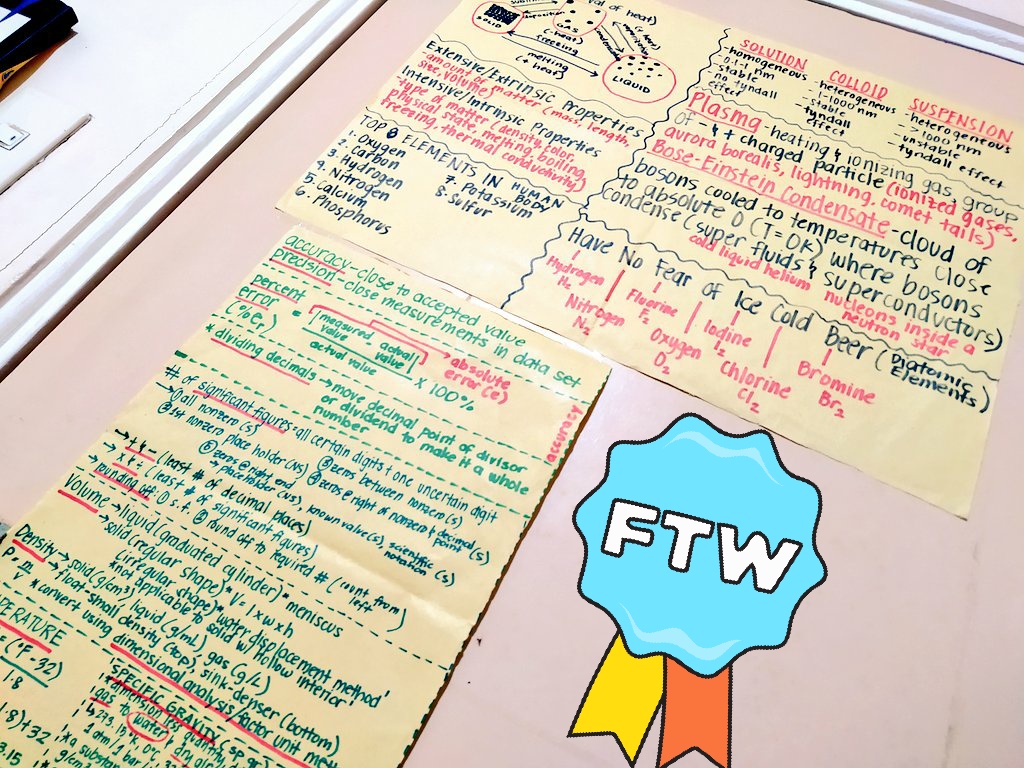 val of heat)
SOLID
GAS
deposition
(-heat)
freezing
melting
(+ heat)
LIQUID
Extensive/Extrinsic Properties
-amount of matter (mass, length,
size, volume)
Intensive/Intrinsic Properties
-type of matter (density, color,
physical state, melting, boiling,
freezing, thermal conductivity)
TOP 8 ELEMENTS IN HUMAN BODY
1. Oxygen
2. Carbon
3. Hydrogen
4. Nitrogen
5. Calcium
6. Phosphorus
7. Potassium
8. Sulfur
SOLUTION
-homogeneous
-0.1-1 nm
-stable
-no tyndall
effect
COLLOID
-heterogeneous
-1-1000 nm
-stable
-tyndall
effect
SUSPENSION
-heterogeneous
- > 1000 nm
-unstable
-tyndall effect
Plasma-heating & ionizing gas, group
of - & + charged particle (ionized gases,
aurora borealis, lightning, comet tails)
Bose-Einstein Condensate-cloud of
bosons cooled to temperatures close
to absolute 0 (T=0K) where bosons
condense (super fluids & superconductors)
cold liquid helium
nucleons inside a
neutron star
Have No Fear of Ice Cold Beer (Diatomic
Elements)
Hydrogen
H₂
Nitrogen
N₂
Fluorine
F₂
Oxygen
O₂
Iodine
I₂
Chlorine
Cl₂
Bromine
Br₂
accuracy-close to accepted value
precision-close measurements in data set
percent
error
(%Er)
=
measured value
actual value
actual value
x 100%
absolute
error(e)
accuracy
* dividing decimals → move decimal point of divisor
or dividend to make it a whole
number
# of significant figures=all certain digits + one uncertain digit
all nonzero(s)
zeros between nonzero(s)
1st nonzero
place holder(ns)
zeros @ right of nonzero & decimal point(s)
zeros @ right end
→ placeholder(ns), known value(s), scientific
notation (s)
→ + & - (least # of decimal places)
→ x & ÷ (least # of significant figures)
→ rounding off
round off to required # (count from
left)
Volume → liquid (graduated cylinder) * meniscus
→ solid (regular shape) * V = l x w x h
(irregular shape) * water displacement method
*not applicable to solid w/ hollow interior
Density → solid (g/cm³), liquid (g/mL), gas (g/L)
P = m/V
* float-small density (top), sink-denser (bottom)
* convert using dimensional analysis/factor unit
PERATURE
(°F-32)
1.8
.8)+32
3.15
SPECIFIC GRAVITY (sp. gr.)
gas to water
FTW